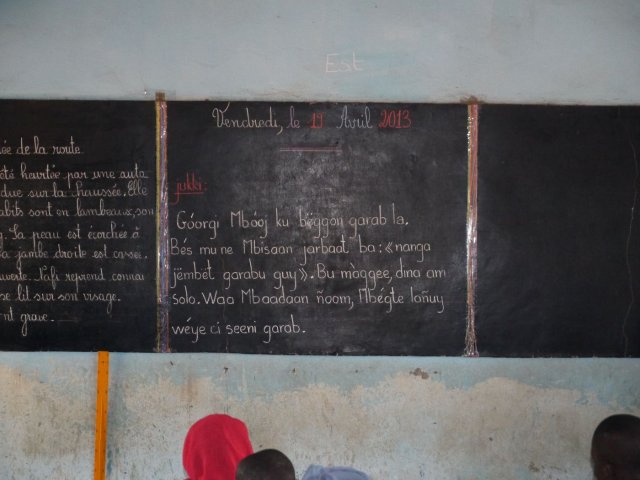 Est
ée de la route
été heurtée par une auto
due sur la chaussée. Elle
abits sont en lambeaux, son
. La peau est écorchée à
a jambe droite est cassée.
uverte. Nafi reprend connai
se lit sur son visage.
nt grave.
Vendredi, le 19 Avril 2013
jukki:
Góorgi Mbóoj ku bëggoon garab la.
Bés mu ne Mbisaan jarbaat ba: «nanga
jëmbët garabu guy». Bu màggee, dina am
solo. Waa Mbaadaan ñoom, Mbégte lañuy
wéye ci seeni garab.